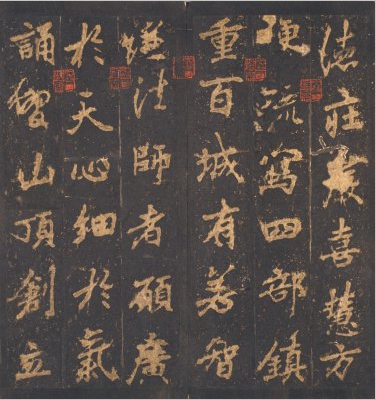 德莊嚴喜慧方
便疏寫四部鎮
重百城有若智
謙法師者願廣
於天心細於氣
誦習山頂創立